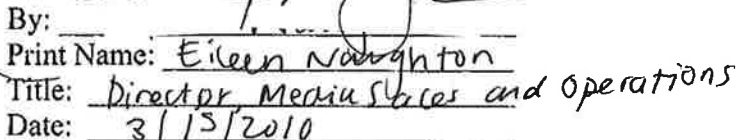 By:
Print Name: Eileen Naughton
Title: Director, Media Sales and Operations
Date: 3/15/2010